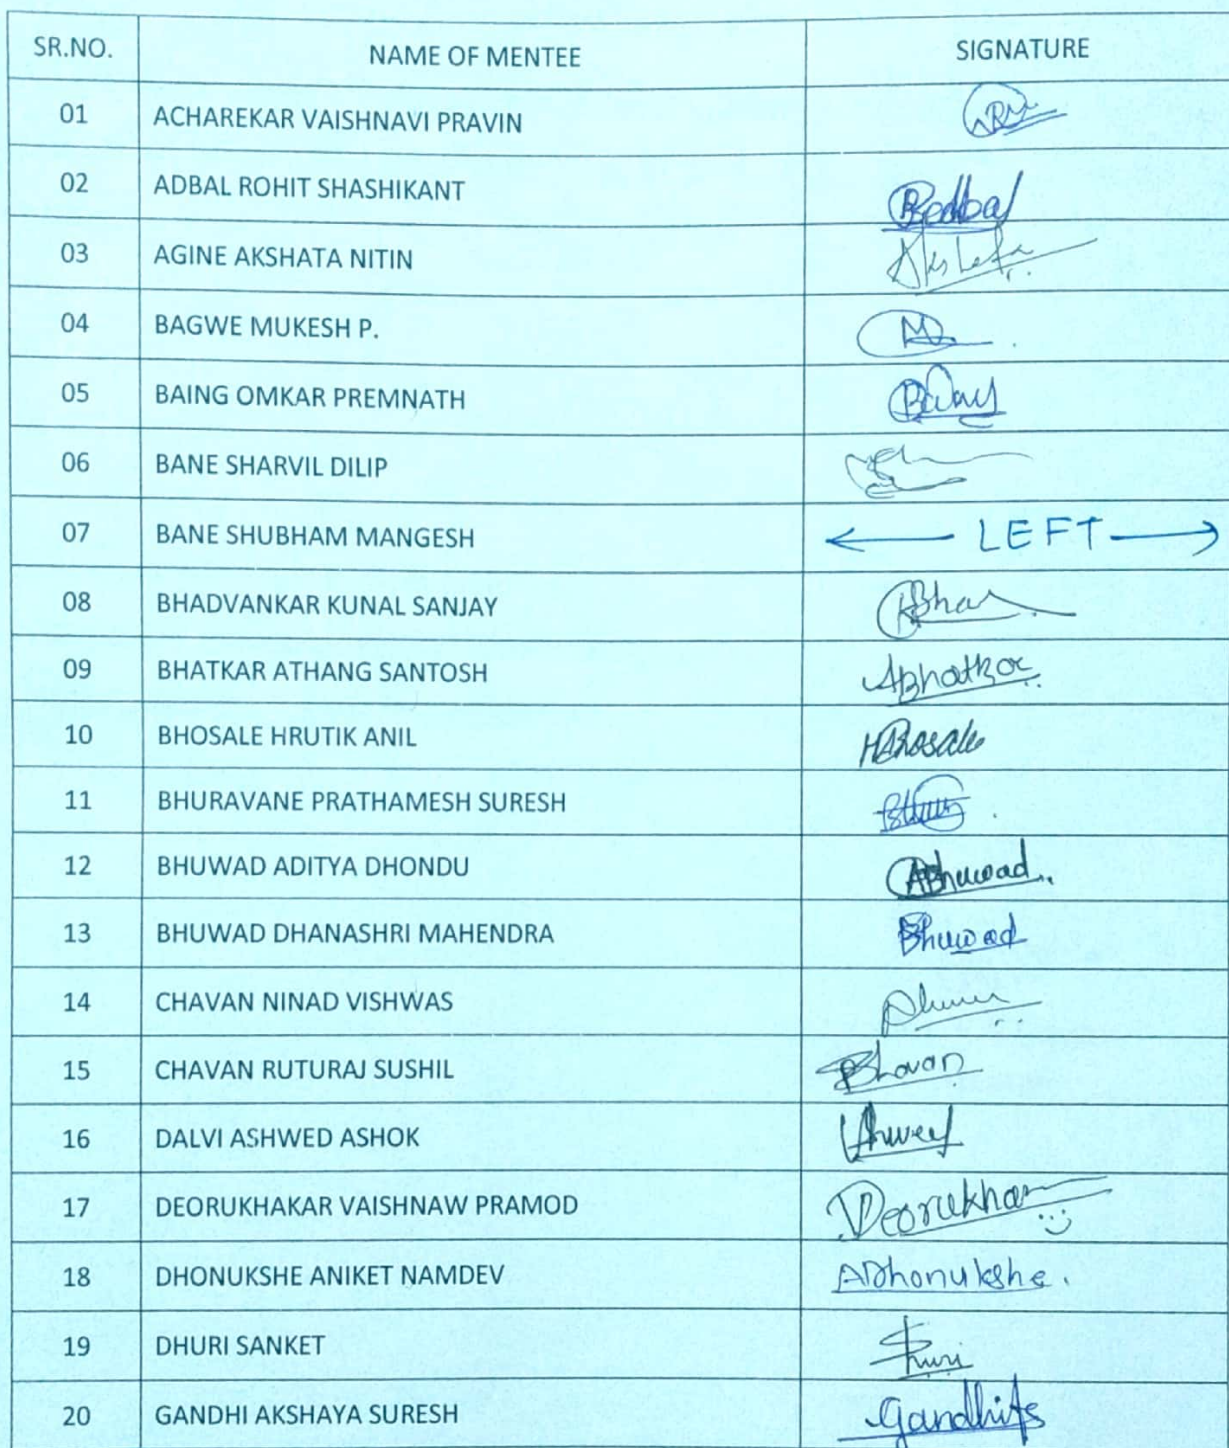 SR.NO. NAME OF MENTEE SIGNATURE
01 ACHAREKAR VAISHNAVI PRAVIN
02 ADBAL ROHIT SHASHIKANT
03 AGINE AKSHATA NITIN Akshata
04 BAGWE MUKESH P.
05 BAING OMKAR PREMNATH
06 BANE SHARVIL DILIP
07 BANE SHUBHAM MANGESH LEFT
08 BHADVANKAR KUNAL SANJAY
09 BHATKAR ATHANG SANTOSH ABhatkar
10 BHOSALE HRUTIK ANIL HBhosale
11 BHURAVANE PRATHAMESH SURESH
12 BHUWAD ADITYA DHONDU ABhuwad
13 BHUWAD DHANASHRI MAHENDRA Bhuwad
14 CHAVAN NINAD VISHWAS
15 CHAVAN RUTURAJ SUSHIL
16 DALVI ASHWED ASHOK
17 DEORUKHAKAR VAISHNAW PRAMOD
18 DHONUKSHE ANIKET NAMDEV ADhonukshe.
19 DHURI SANKET
20 GANDHI AKSHAYA SURESH